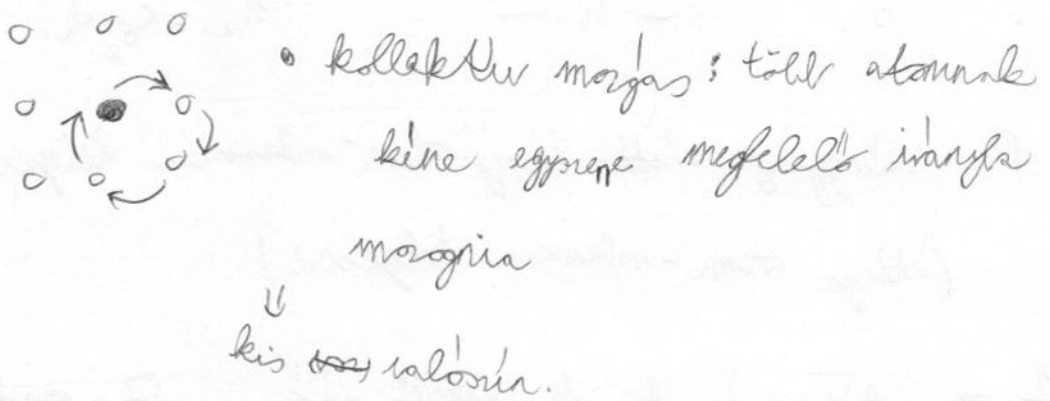 • kollektív mozgás: több atomnak
kéne egyszerre megfelelő irányba
mozognia
⇓
kis valószín.